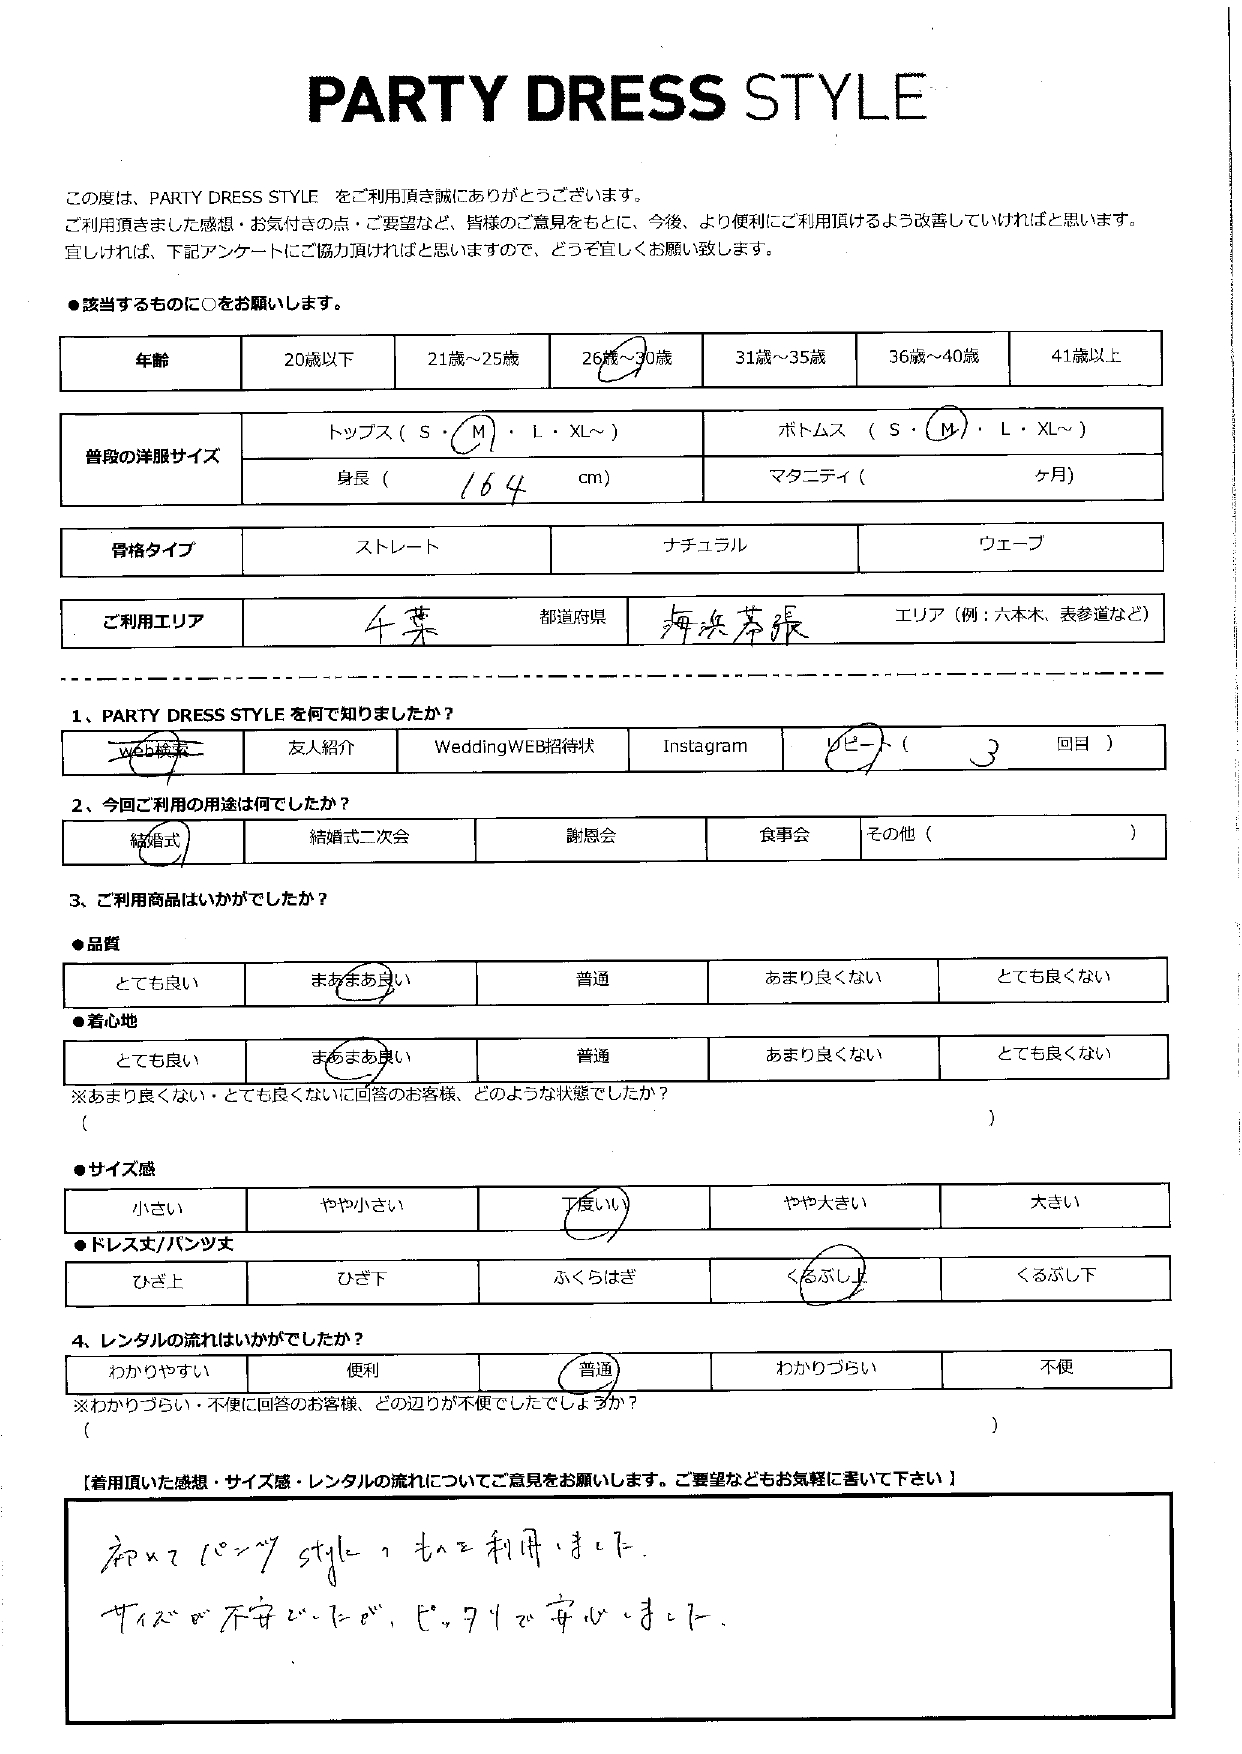 PARTY DRESS STYLE
この度は、PARTY DRESS STYLE をご利用頂き誠にありがとうございます。
ご利用頂きました感想・お気付きの点・ご要望など、皆様のご意見をもとに、今後、より便利にご利用頂けるよう改善していければと思います。
宜しければ、下記アンケートにご協力頂ければと思いますので、どうぞ宜しくお願い致します。
●該当するものに○をお願いします。
年齢 20歳以下 21歳～25歳 26歳～30歳 31歳～35歳 36歳～40歳 41歳以上
普段の洋服サイズ トップス ( S ・ M ・ L ・ XL～ ) ボトムス ( S ・ M ・ L ・ XL～ )
身長 ( 164 cm) マタニティ ( ヶ月)
骨格タイプ ストレート ナチュラル ウェーブ
ご利用エリア 千葉 都道府県 海浜幕張 エリア（例：六本木、表参道など）
1、PARTY DRESS STYLE を何で知りましたか？
web検索 友人紹介 WeddingWEB招待状 Instagram リピート ( 3 回目 )
2、今回ご利用の用途は何でしたか？
結婚式 結婚式二次会 謝恩会 食事会 その他 ( )
3、ご利用商品はいかがでしたか？
●品質
とても良い まあまあ良い 普通 あまり良くない とても良くない
●着心地
とても良い まあまあ良い 普通 あまり良くない とても良くない
※あまり良くない・とても良くないに回答のお客様、どのような状態でしたか？
( )
●サイズ感
小さい やや小さい 丁度いい やや大きい 大きい
●ドレス丈/パンツ丈
ひざ上 ひざ下 ふくらはぎ くるぶし上 くるぶし下
4、レンタルの流れはいかがでしたか？
わかりやすい 便利 普通 わかりづらい 不便
※わかりづらい・不便に回答のお客様、どの辺りが不便でしたでしょうか？
( )
【着用頂いた感想・サイズ感・レンタルの流れについてご意見をお願いします。ご要望などもお気軽に書いて下さい 】
初めてパンツstyleのものを利用しました.
サイズが不安でしたが、ピッタリで安心しました.